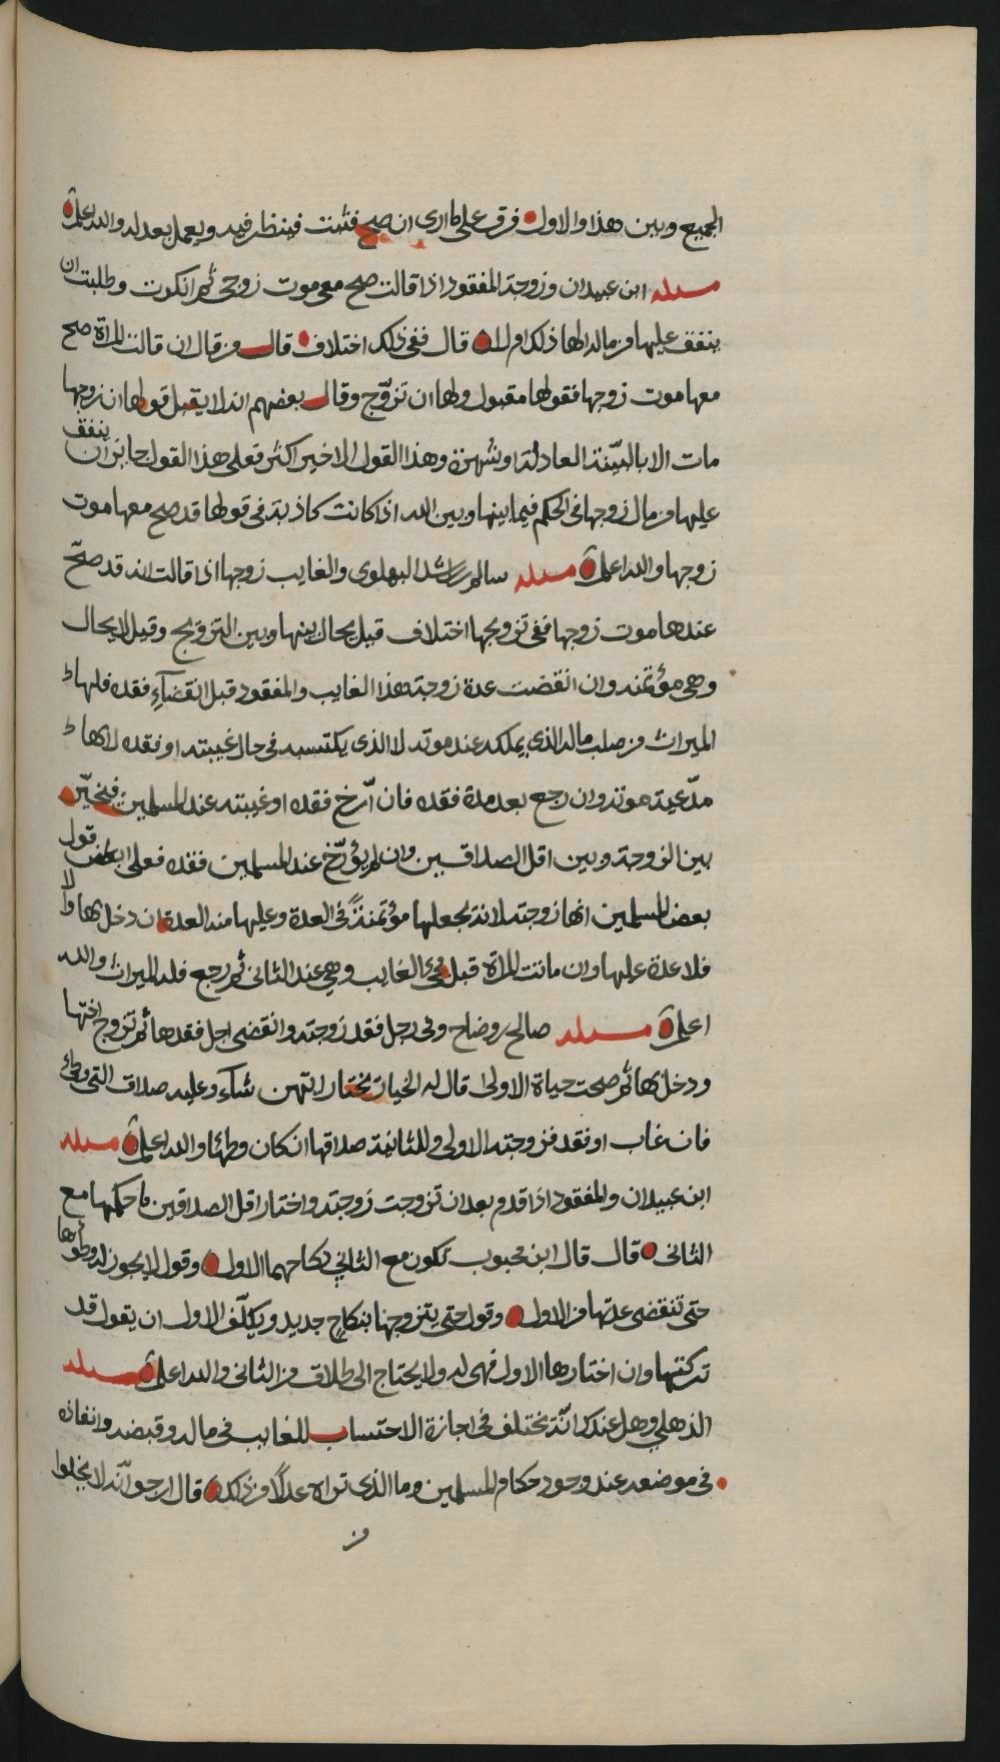 الجميع وبين هذا والاول فرق على ما ارى ان صح فثبت فينظر فيه ويعمل بعدله والله اعلم
مسئله ابن عبيدان وزوجة المفقود اذا قالت صح معي موت زوجي ثم انكرت وطلبت ان
ينفق عليها من ماله الها ذلك ام لا قال ففي ذلك اختلاف قال من قال ان قالت المراة صح
معها موت زوجها فقولها مقبول ولها ان تزوّج وقال بعضهم انه لا يقبل قولها ان زوجها
مات الا بالبيّنة العادلة او شهرة وهذا القول الاخير اكثر فعلى هذا القول جايز ان ينفق
عليها من مال زوجها في الحكم فيما بينها وبين الله اذا كانت كاذبة في قولها قد صح معها موت
زوجها والله اعلم مسئله سالم بن راشد البهلوي والغايب زوجها اذا قالت انه قد صحّ
عندها موت زوجها ففي تزويجها اختلاف قيل يحال بينها وبين التزويج وقيل لا يحال
وهي مؤتمنه وان انقضت عدة زوجة هذا الغايب والمفقود قبل انقضآء فقده فلها
الميراث من صلب ماله الذي يملكه عند موته لا الذي يكتسبه في حال غيبته او فقده لانها
مدّعية موته وان رجع بعد مدة فقده فان ارّخ فقده او غيبته عند المسلمين فيخيّر
بين الزوجة وبين اقل الصداقين وان لم يؤرّخ عند المسلمين فقده فعلى بعض قول
بعض المسلمين انها زوجته لانه يجعلها مؤتمنةً في العدة وعليها منه العدة ان دخل بها والا
فلا عدة عليها وان ماتت المراة قبل مجئ الغايب وهي عند الثاني ثم رجع فله الميراث والله
اعلم مسئله صالح بن وضاح وفي رجل فقد زوجته وانقضى اجل فقدها ثم تزوج اختها
ودخل بها ثم صحت حياة الاولى قال له الخيار يختار ايتهن شآء وعليه صداق التي وطئ
فان غاب او فقد فزوجته الاولى وللثانية صداقها ان كان وطئها والله اعلم مسئله
ابن عبيدان والمفقود اذا قدم بعد ان تزوجت زوجته واختار اقل الصداقين ما حكمها مع
الثاني قال قال ابن محبوب تكون مع الثاني بنكاحهما الاول وقول لا يجوز له وطؤها
حتى تنقضي عدتها من الاول وقول حتى يتزوجها بنكاح جديد ويكلّف الاول ان يقول قد
تركتها وان اختارها الاول فهي له ولا يحتاج الى طلاق من الثاني والله اعلم مسئله
الذهلي وهل عندك انّه يختلف في اجازة الاحتساب للغايب في ماله وقبضه وانفاذه
في موضعه عند وجود حكام المسلمين وما الذي تراه عدلًا من ذلك قال ارجو انّه لا يخلوا
من